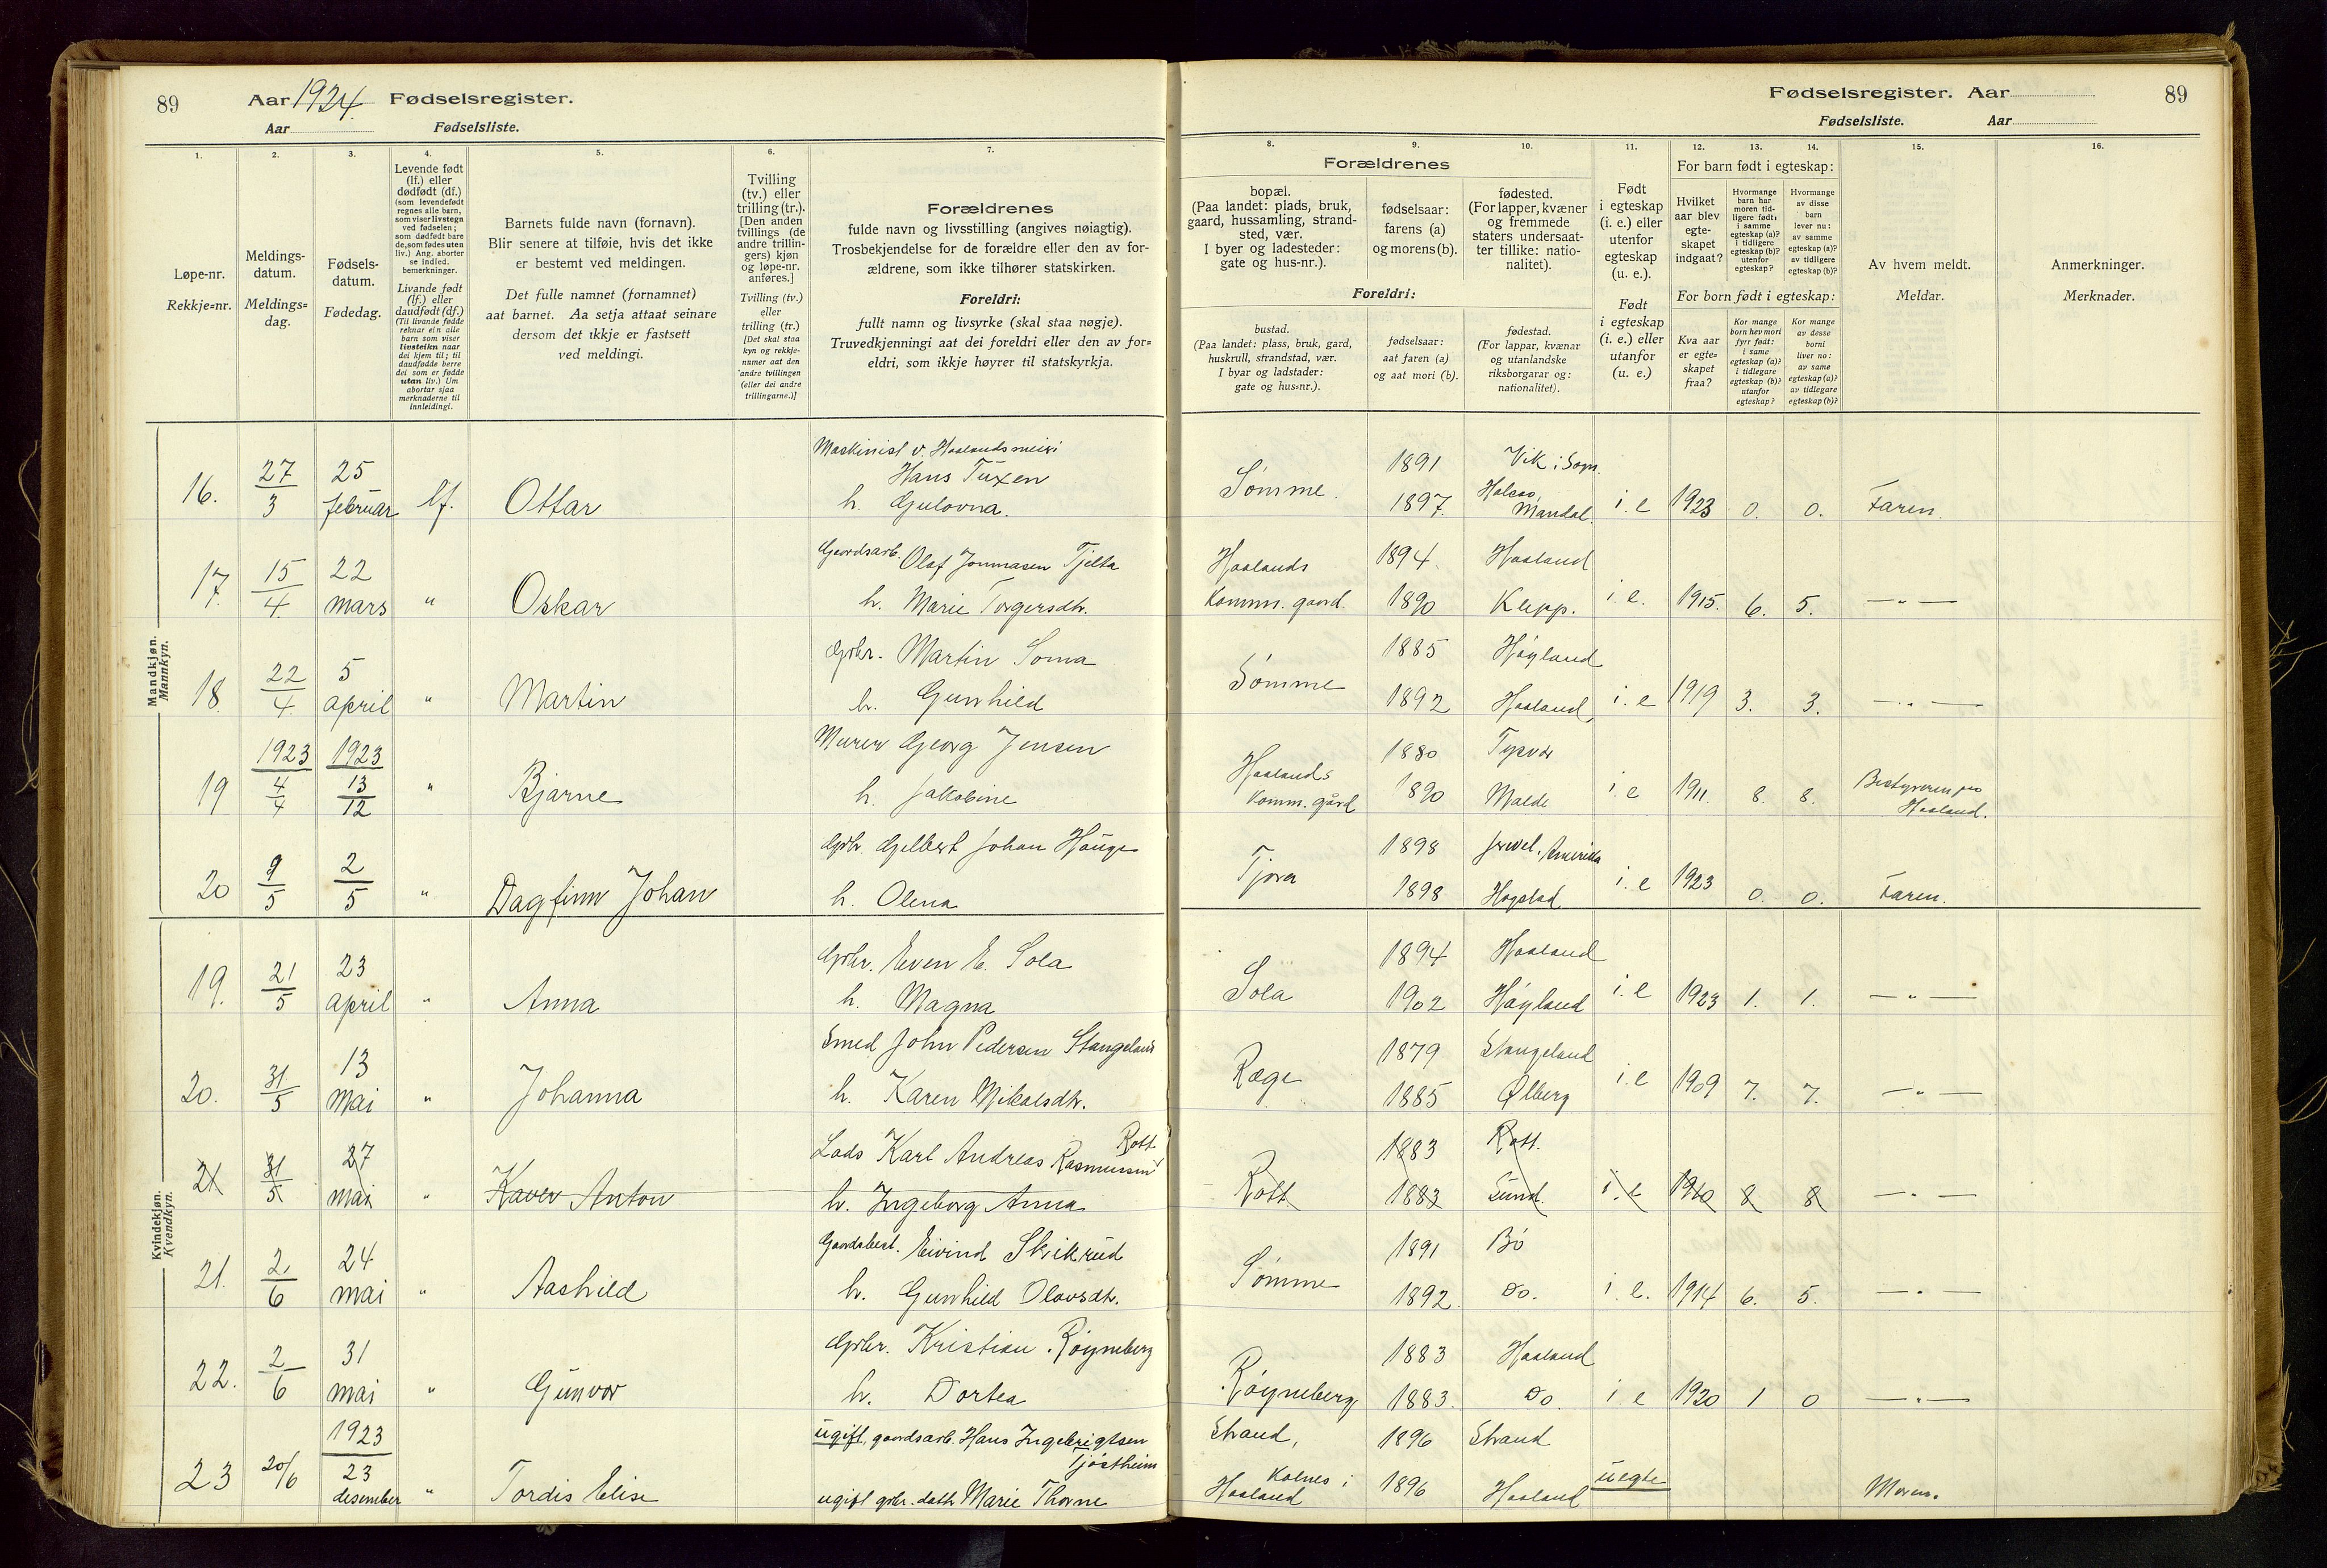 89 Aar 1924. Fødselsregister.
Aar Fødselsliste.
Fødselsregister. Aar 89
Fødselsliste. Aar
1. 2. 3. 4. 5. 6. 7.
Løpe-nr.
Rekkje=nr.
Meldings-
datum.
Meldings=
dag.
Fødsels-
datum.
Fødedag.
Levende født
(lf.) eller
dødfødt (df.)
(som levendefødt
regnes alle barn,
som viser livstegn
ved fødselen;
som dødfødt bare
de, som fødes uten
liv.) Ang. aborter
se indled.
bemerkninger.
Livande født
(lf.) eller
daudfødt (df.)
(Til livande fødde
reknar ein alle
barn som viser
livsteikn naar
dei kjem til; til
daudfødde berre
dei som er fødde
utan liv.) Um
abortar sjaa
merknaderne til
innleidingi.
Barnets fulde navn (fornavn).
Blir senere at tilføie, hvis det ikke
er bestemt ved meldingen.
Det fulle namnet (fornamnet)
aat barnet. Aa setja attaat seinare
dersom det ikkje er fastsett
ved meldingi.
Tvilling
(tv.) eller
trilling (tr.).
[Den anden
tvillings (de
andre trillin-
gers) kjøn
og løpe-nr.
anføres.]
Tvilling (tv.)
eller
trilling (tr.)
[Det skal staa
kyn og rekkje-
numer aat den
andre tvillingen
(eller dei andre
trillingarne.)]
Forældrenes
fulde navn og livsstilling (angives nøiagtig).
Trosbekjendelse for de forældre eller den av for-
ældrene, som ikke tilhører statskirken.
Foreldri:
fullt namn og livsyrke (skal staa nøgje).
Truvedkjenningi aat dei foreldri eller den av for=
eldri, som ikkje høyrer til statskyrkja.
8. 9. 10. 11. 12. 13. 14. 15. 16.
Forældrenes
bopæl.
(Paa landet: plads, bruk,
gaard, hussamling, strand-
sted, vær.
I byer og ladesteder:
gate og hus-nr.).
fødselsaar:
farens (a)
og morens (b).
fødested.
(For lapper, kvæner
og fremmede
staters undersaat-
ter tillike: natio-
nalitet).
Foreldri:
bustad.
(Paa landet: plass, bruk, gard,
huskrull, strandstad, vær.
I byar og ladstader:
gate og hus=nr.).
fødselsaar:
aat faren (a)
og aat mori (b).
fødestad.
(For lappar, kvænar
og utanlandske
riksborgarar og:
nationalitet).
Født
i egteskap
(i. e.) eller
utenfor
egteskap
(u. e.).
Født
i egteskap
(i. e.) eller
utanfor
(u. e.)
For barn født i egteskap:
Hvilket
aar blev
egte-
skapet
indgaat?
Hvormange
barn har
moren tid-
ligere født:
i samme
egteskap (a)?
i tidligere
egteskap (b)?
utenfor
egteskap?
Hvormange
av disse
barn
lever nu:
av samme
egteskap (a)?
av tidligere
egteskap (b)?
For born født i egteskap:
Kva aar
er egte=
skapet
fraa?
Kor mange
born hev mori
fyrr født:
i same
egteskap (a)?
i tidlegare
egteskap (b)?
utanfor
egteskap?
Kor mange
av desse
borni
liver no:
av same
egteskap (a)?
av tidlegare
egteskap (b)?
Av hvem meldt.
Meldar.
Anmerkninger.
Merknader.
Mandkjøn.
Mannkyn.
Maskinist v. Haalandsmeiri 1891 Vik i Sogn.
16. 27/3 25 februar lf. Ottar Hans Tuxen Sømme.
h. Gulovna. 1897. Mandal. i. e 1923 0. 0. Faren.
Gaardsarb. Olaf Jonmasen Tjelta Haalands 1894. Haaland
17. 15/4. 22 mars " Oskar h. Marie Torgersdtr. Komm. gaard. 1890 Klepp. i. e. 1915. 6. 5. — " —
Gdbr. Martin Soma 1885 Høyland
18. 22/4. 5 april " Martin h. Gunhild Sømme 1892 Haaland i. e 1919 3. 3. — " —
Murer Georg Jensen Haalands 1880 Tysvær
19 1923 4/4 1923 13/12 " Bjarne h. Jakobine Komm. gård 1890 Malde i. e 1911. 8. 8. Bestyreren paa Haaland.
Gdbr. Gjelbert Johan Hauge 1898 Amerika
20 9/5 2/5 " Dagfinn Johan h. Olena Tjora 1898 Hogstad i. e 1923 0. 0. Faren.
Kvindekjøn.
Kvendkyn.
Gdbr. Even E. Sola 1894 Haaland
19. 21/5 23 april " Anna h. Magna Sola 1902 Høyland i. e 1923 1. 1. — " —
Smed John Pedersen Stangeland 1879 Stangeland
20. 31/5 13 Mai " Johanna h. Karen Mikalsdtr. Ræge 1885 Ølberg i. e 1909 7. 7. — " —
Lods Karl Andreas Rasmussen Rott 1883 Rott.
21 31/5 27 mai " Kaver Anton h. Ingeborg Anna Rott 1883 Sund. i. e 1910 8 8 — " —
Gaardsbest. Eivind Skikrud 1891 Bø
21. 2/6 24 mai " Aashild h. Gunhild Olavsdtr. Sømme 1892. Do. i. e. 1914 6. 5. — " —
Gdbr. Kristian Røyneberg 1883 Haaland
22. 2/6 31 mai " Gunvor h. Dortea Røyneberg 1883. Do. i e 1920 1 0 — " —
ugift, gaardsarb. Hans Ingebrigtsen Tjøstheim Strand, 1896 Strand
23 20/6 1923 23 desember " Tordis Elise ugift gdbr. datt. Marie Thorne Kolnes i Haaland 1896 Haaland uegte Moren.